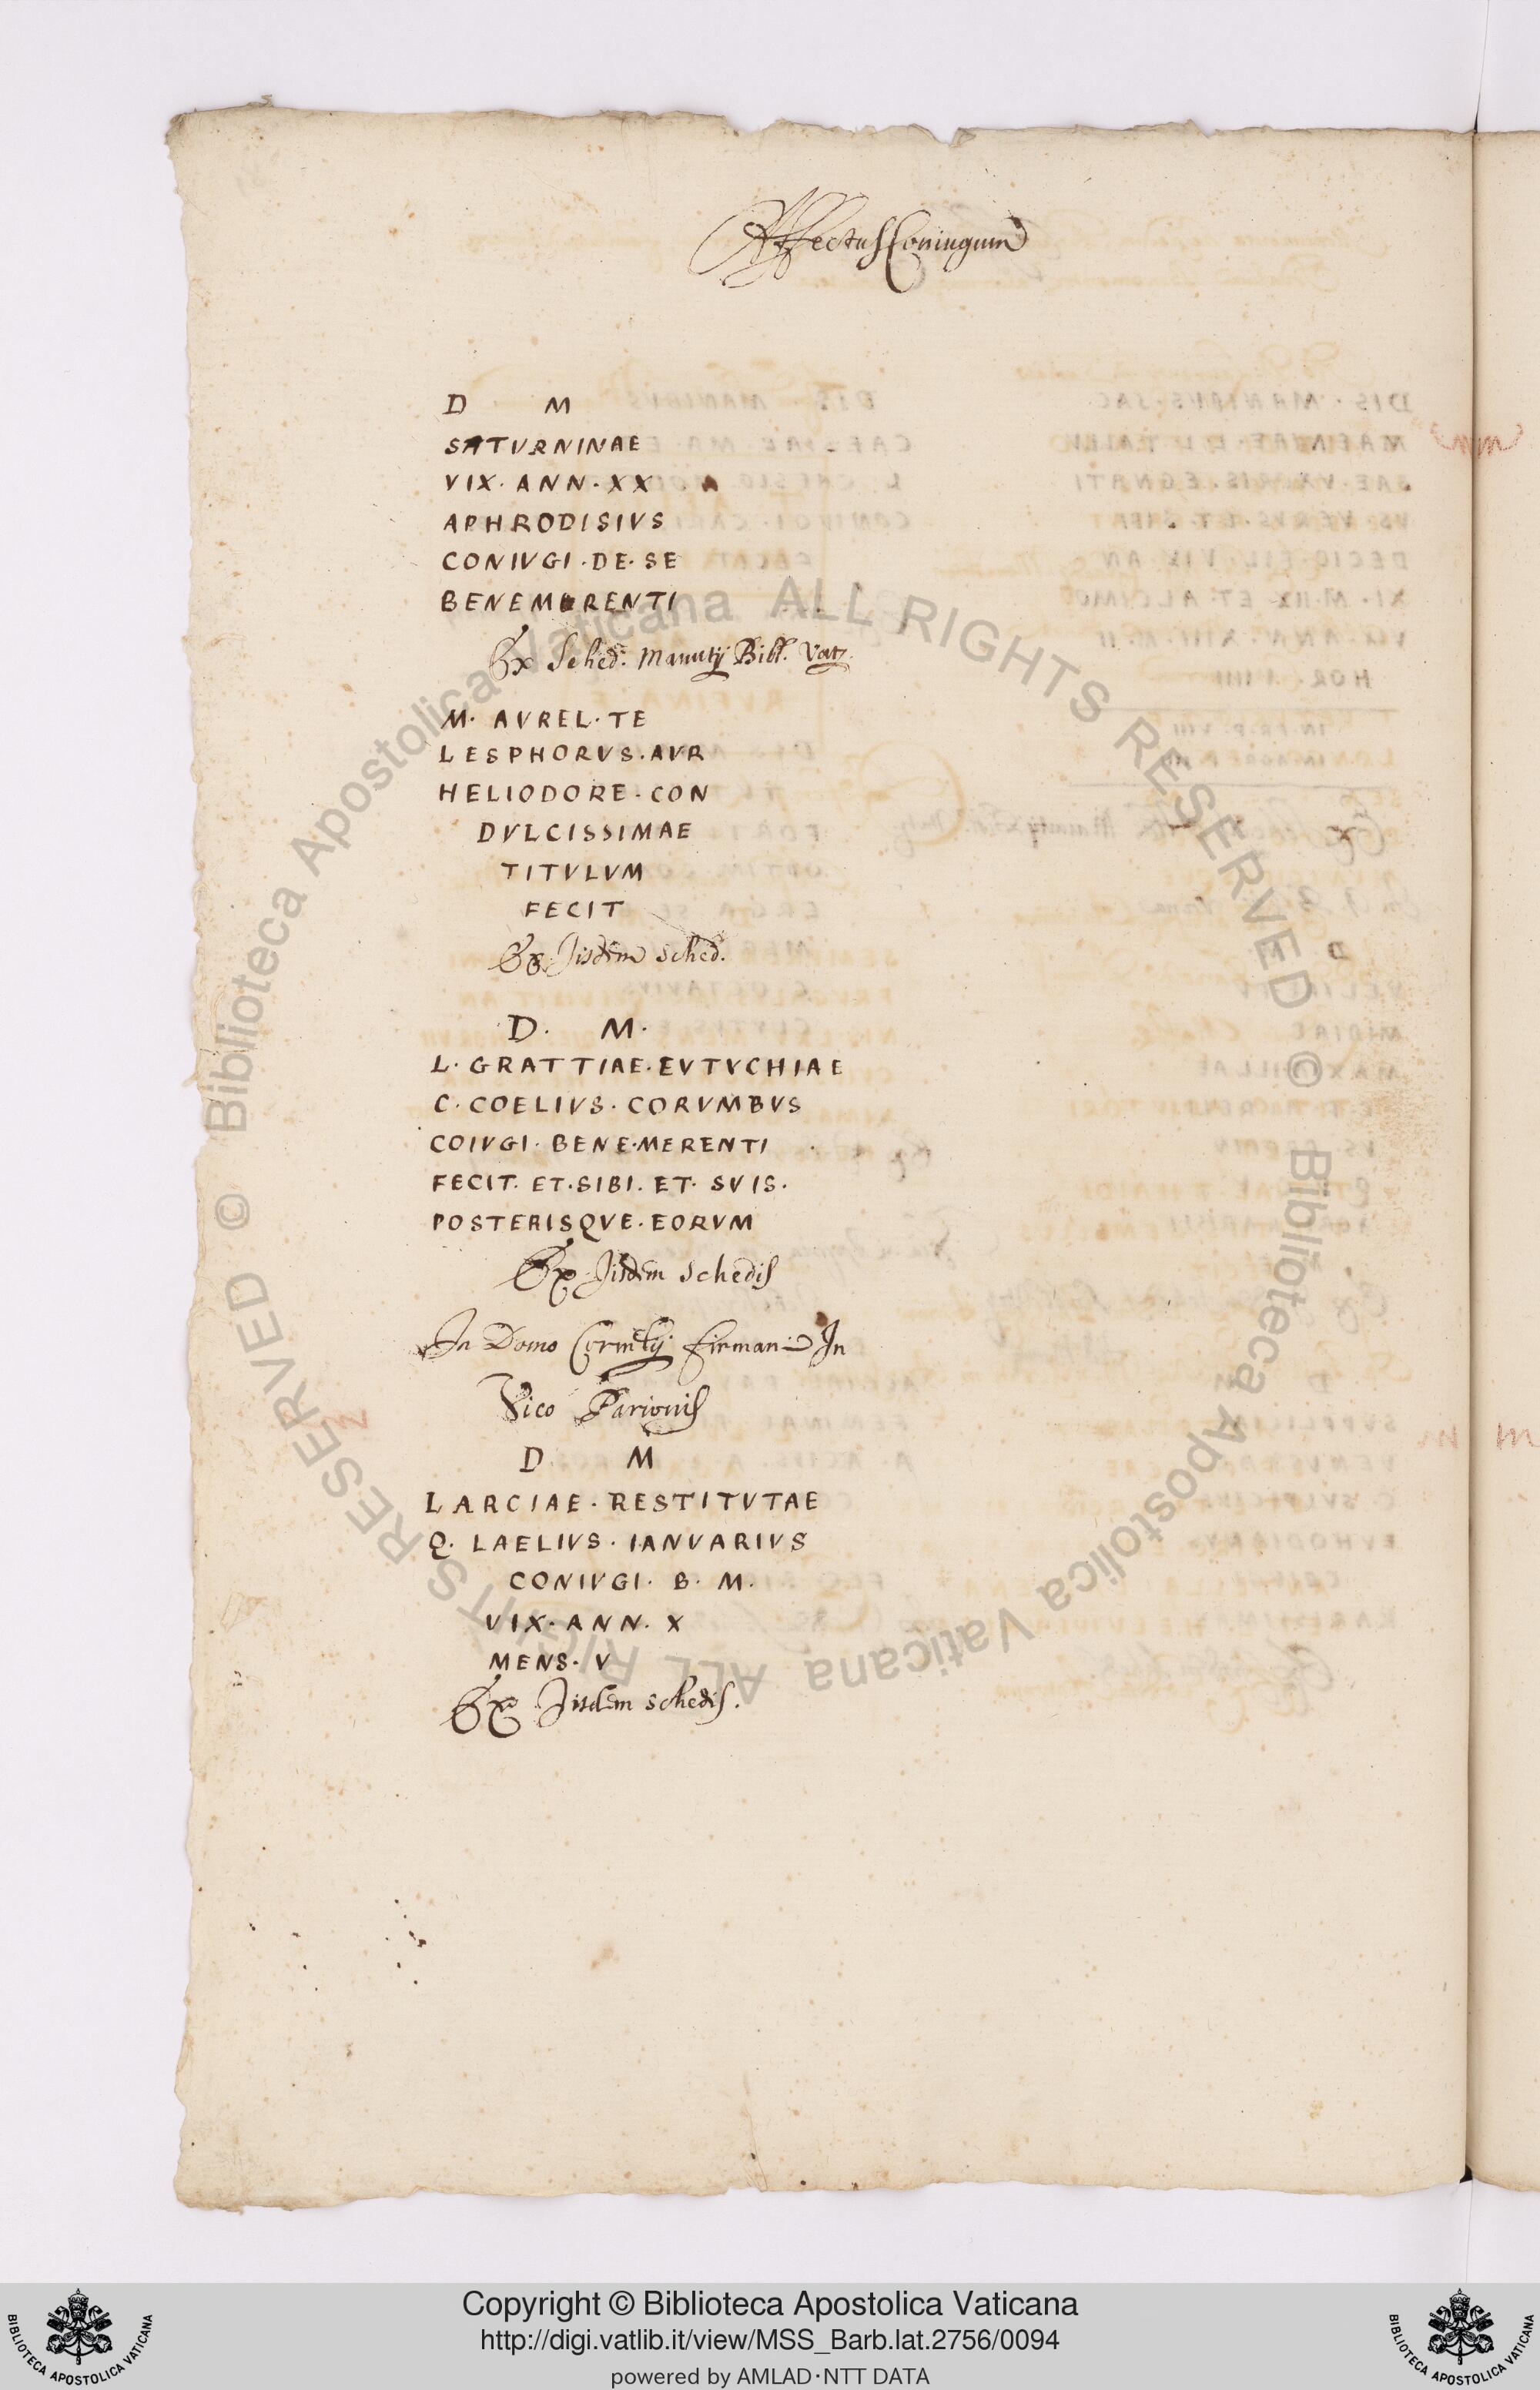 Affectus Coniugum
D M
SATVRNINAE
VIX. ANN. XX
APHRODISIVS
CONIVGI. DE. SE
BENEMERENTI
Ex Sched. Manutij Bibl. Vat.
M. AVREL. TE
LESPHORVS. AVR
HELIODORE. CON
DVLCISSIMAE
TITVLVM
FECIT
Ex Jisdem sched.
D. M.
L. GRATTIAE. EVTVCHIAE
C. COELIVS. CORVMBVS
COIVGI. BENE.MERENTI
FECIT. ET. SIBI. ET. SVIS.
POSTERISQVE. EORVM
Ex Jisdem schedis
In Domo Firmani In
Vico Parionis
D. M
LARCIAE. RESTITVTAE
Q. LAELIVS. IANVARIVS
CONIVGI. B. M.
VIX. ANN. X
MENS. V
Ex Jisdem schedis.
© Biblioteca Apostolica Vaticana ALL RIGHTS RESERVED
© Biblioteca Apostolica Vaticana ALL RIGHTS RESERVED
Copyright © Biblioteca Apostolica Vaticana
http://digi.vatlib.it/view/MSS_Barb.lat.2756/0094
powered by AMLAD·NTT DATA
BIBLIOTECA APOSTOLICA VATICANA
BIBLIOTECA APOSTOLICA VATICANA